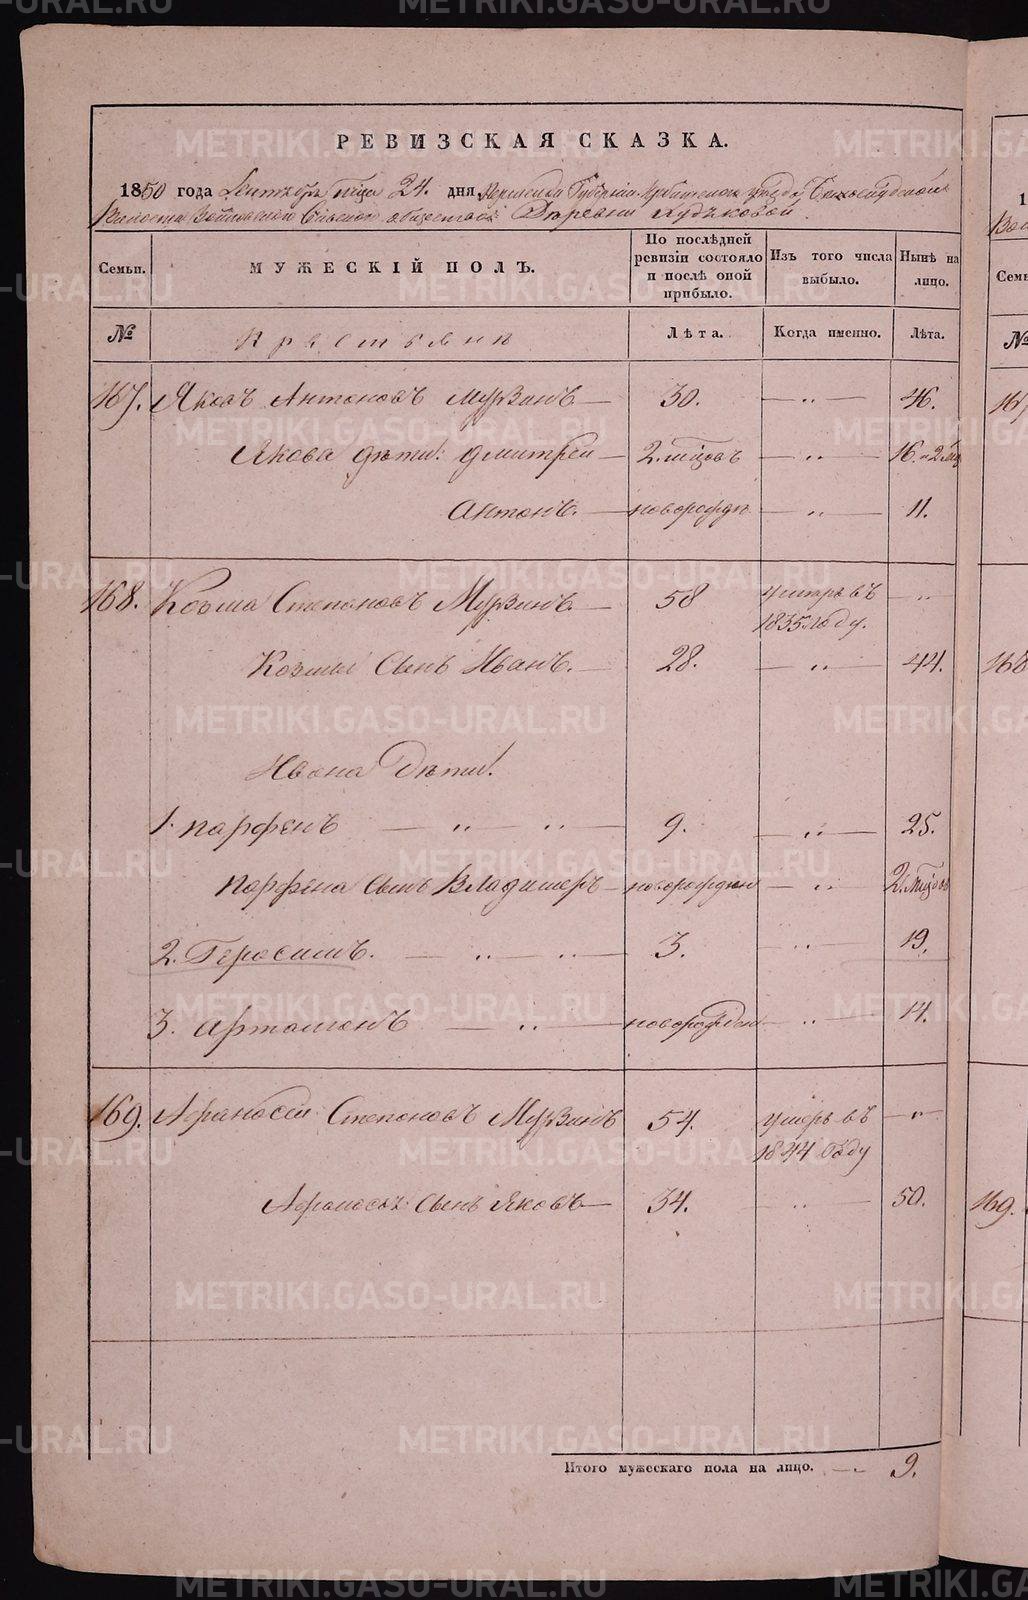 РЕВИЗСКАЯ СКАЗКА.
1850 года Сентября мца 24. дня Пермской Губернiи Ирбитскаго уезда Белослудской
Волости Зайковскаго Сельскаго общества Деревни Кудѣковой.
Семьи.
МУЖЕСКIЙ ПОЛЪ.
По послѣдней ревизiи состояло и послѣ оной прибыло.
Изъ того числа выбыло.
Нынѣ на лицо.
№ Крестьяне Лѣта. Когда именно. Лѣта.
167. Яковъ Антоновъ Мурзинъ — 30. — „ — 46.
Якова дѣти: Дмитрей — 2. мцовъ — „ — 16. и 2 мц
Антонъ. — новорожден — „ — 11.
168. Козьма Степановъ Мурзинъ — 58 умеръ въ 1835 году. — „ —
Козмы Сынъ Иванъ. — 28. — „ — 44.
Ивана Дѣти:
1. Парфенъ — „ „ — 9. — „ — 25.
Парфена Сынъ Владимеръ — новорожден — „ — 2. мцовъ
2. Герасимъ. — „ — „ — 3. — „ — 19.
3. Артамонъ — „ — новорожден — „ — 14.
169. Афанасей Степановъ Мурзинъ 54. умеръ въ 1844 году — „ —
Афанасья Сынъ Яковъ — 34. — „ — 50.
Итого мужескаго пола на лицо. — 9.
168
169.
METRIKI.GASO-URAL.RU